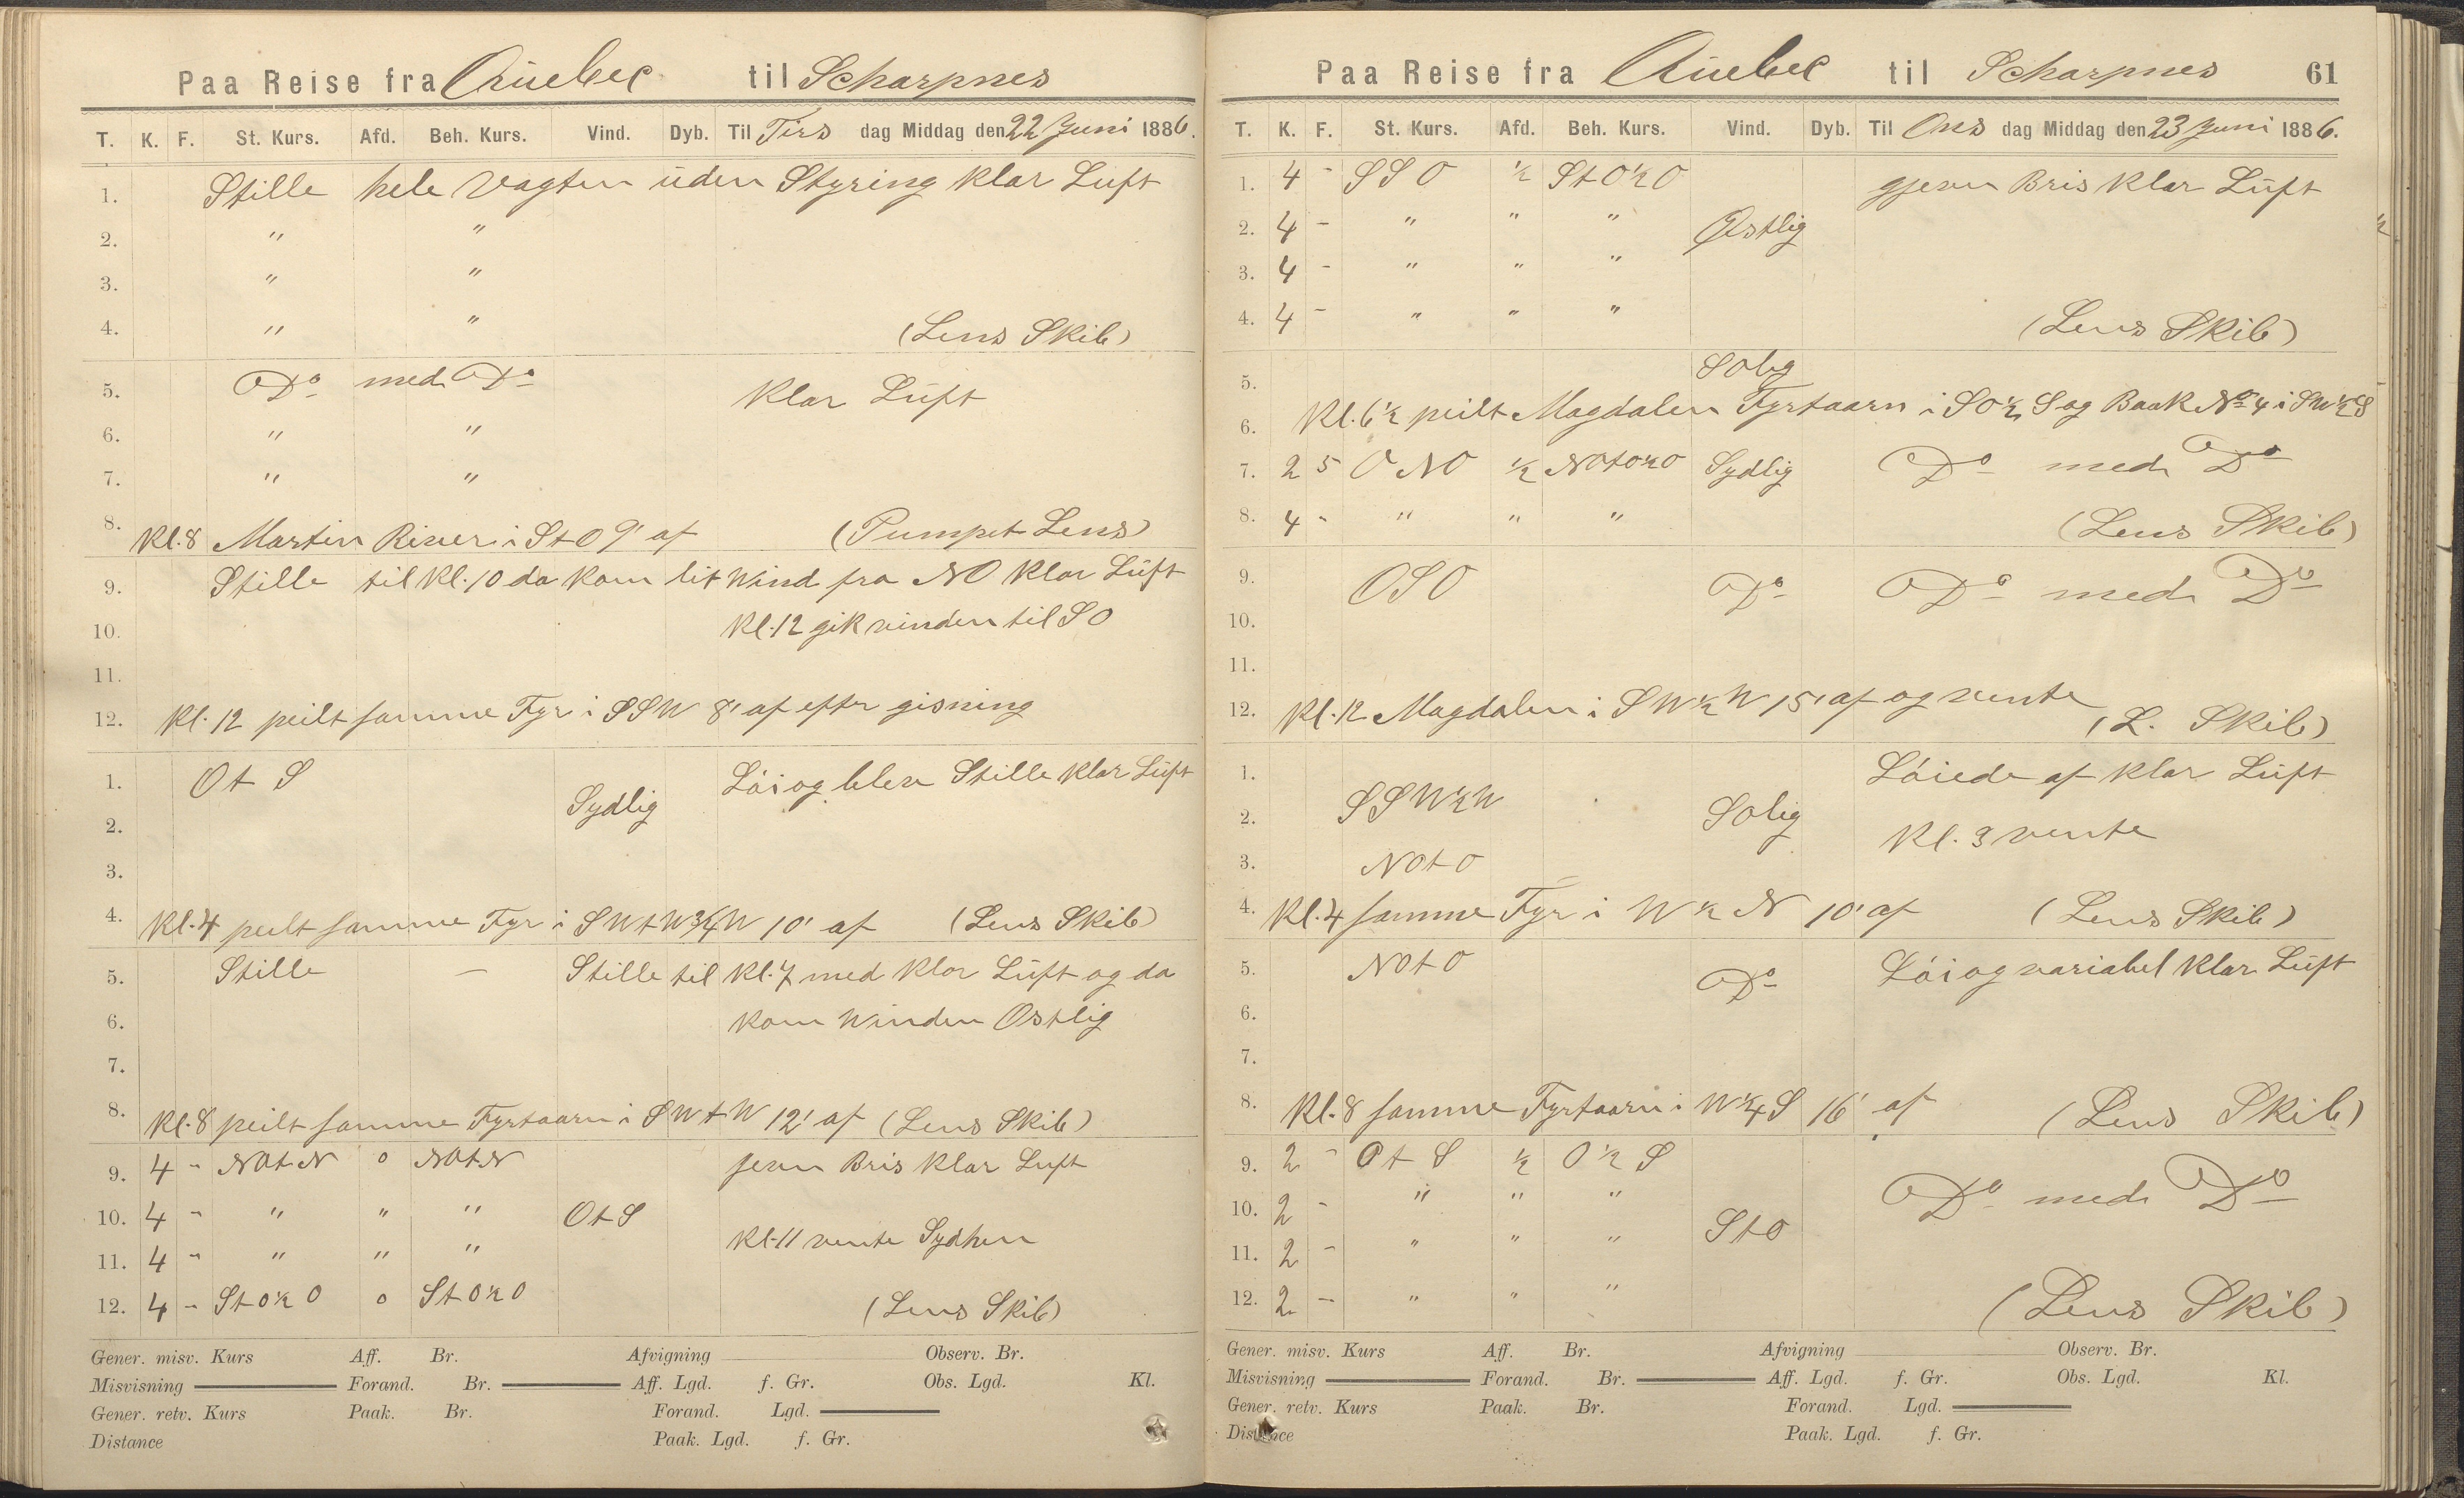 Paa Reise fra Quebec til Scharpnes
T. K. F. St. Kurs. Afd. Beh. Kurs. Vind. Dyb. Til Tirs dag Middag den 22 Juni 1886.
1. Stille hele Vagten uden Styring klar Luft
2. " "
3. " "
4. " " (Lens Skib)
5. Do med Do klar Luft
6. " "
7. " "
8. Kl. 8 Martin River i StO 9' af (Pumpet Lens)
9. Stille til kl. 10 da kom lit Wind fra NO klar Luft
10. Kl. 12 gik vinden til SO
11.
12. Kl. 12 peilt samme Fyr i SSW 8' af efter gisning
1. Ot S Löi og blev Stille klar Luft
2. Sydlig
3.
4. Kl. 4 peilt samme Fyr i SWtW 3/4 W 10' af (Lens Skib)
5. Stille — Stille til kl. 7 med klar Luft og da
6. kom Winden Ostlig
7.
8. Kl. 8 peilt samme Fyrtaarn i SWtW 12' af (Lens Skib)
9. 4 - NOtN 0 NOtN jevn Bris klar Luft
10. 4 - " " " OtS
11. 4 - " " " Kl. 11 vente Sydhen
12. 4 - StO 1/2 O 0 StO 1/2 O (Lens Skib)
Gener. misv. Kurs Aff. Br. Afvigning Observ. Br.
Misvisning Forand. Br. Aff. Lgd. f. Gr. Obs. Lgd. Kl.
Gener. retv. Kurs Paak. Br. Forand. Lgd.
Distance Paak. Lgd. f. Gr.
Paa Reise fra Quebec til Scharpnes 61
T. K. F. St. Kurs. Afd. Beh. Kurs. Vind. Dyb. Til Ons dag Middag den 23 Juni 1886.
1. 4 - SSO 1/2 StO 1/2 O gjevn Bris klar Luft
2. 4 - " " " Østlig
3. 4 - " " "
4. 4 - " " " (Lens Skib)
5. SOlig
6. Kl. 6 1/2 peilt Magdalen Fyrtaarn i SO 1/2 S og Baak No 4 i SW 1/2 S
7. 2 5 ONO 1/2 NOtO 1/2 O Sydlig Do med Do
8. 4 - " " " (Lens Skib)
9. OSO Do Do med Do
10.
11.
12. Kl. 12 Magdalen i SW 1/2 W 15' af og vente (L. Skib)
1. Löiede af klar Luft
2. SSW 1/2 W SOlig Kl. 3 vente
3. NOtO
4. Kl. 4 samme Fyr i W 1/2 N 10' af (Lens Skib)
5. NOtO Do Löi og variabel klar Luft
6.
7.
8. Kl. 8 samme Fyrtaarn i W 1/4 S 16' af (Lens Skib)
9. 2 - OtS 1/2 O 1/2 S
10. 2 - " " " Do med Do
11. 2 - " " " StO
12. 2 - " " " (Lens Skib)
Gener. misv. Kurs Aff. Br. Afvigning Observ. Br.
Misvisning Forand. Br. Aff. Lgd. f. Gr. Obs. Lgd. Kl.
Gener. retv. Kurs Paak. Br. Forand. Lgd.
Distance Paak. Lgd. f. Gr.